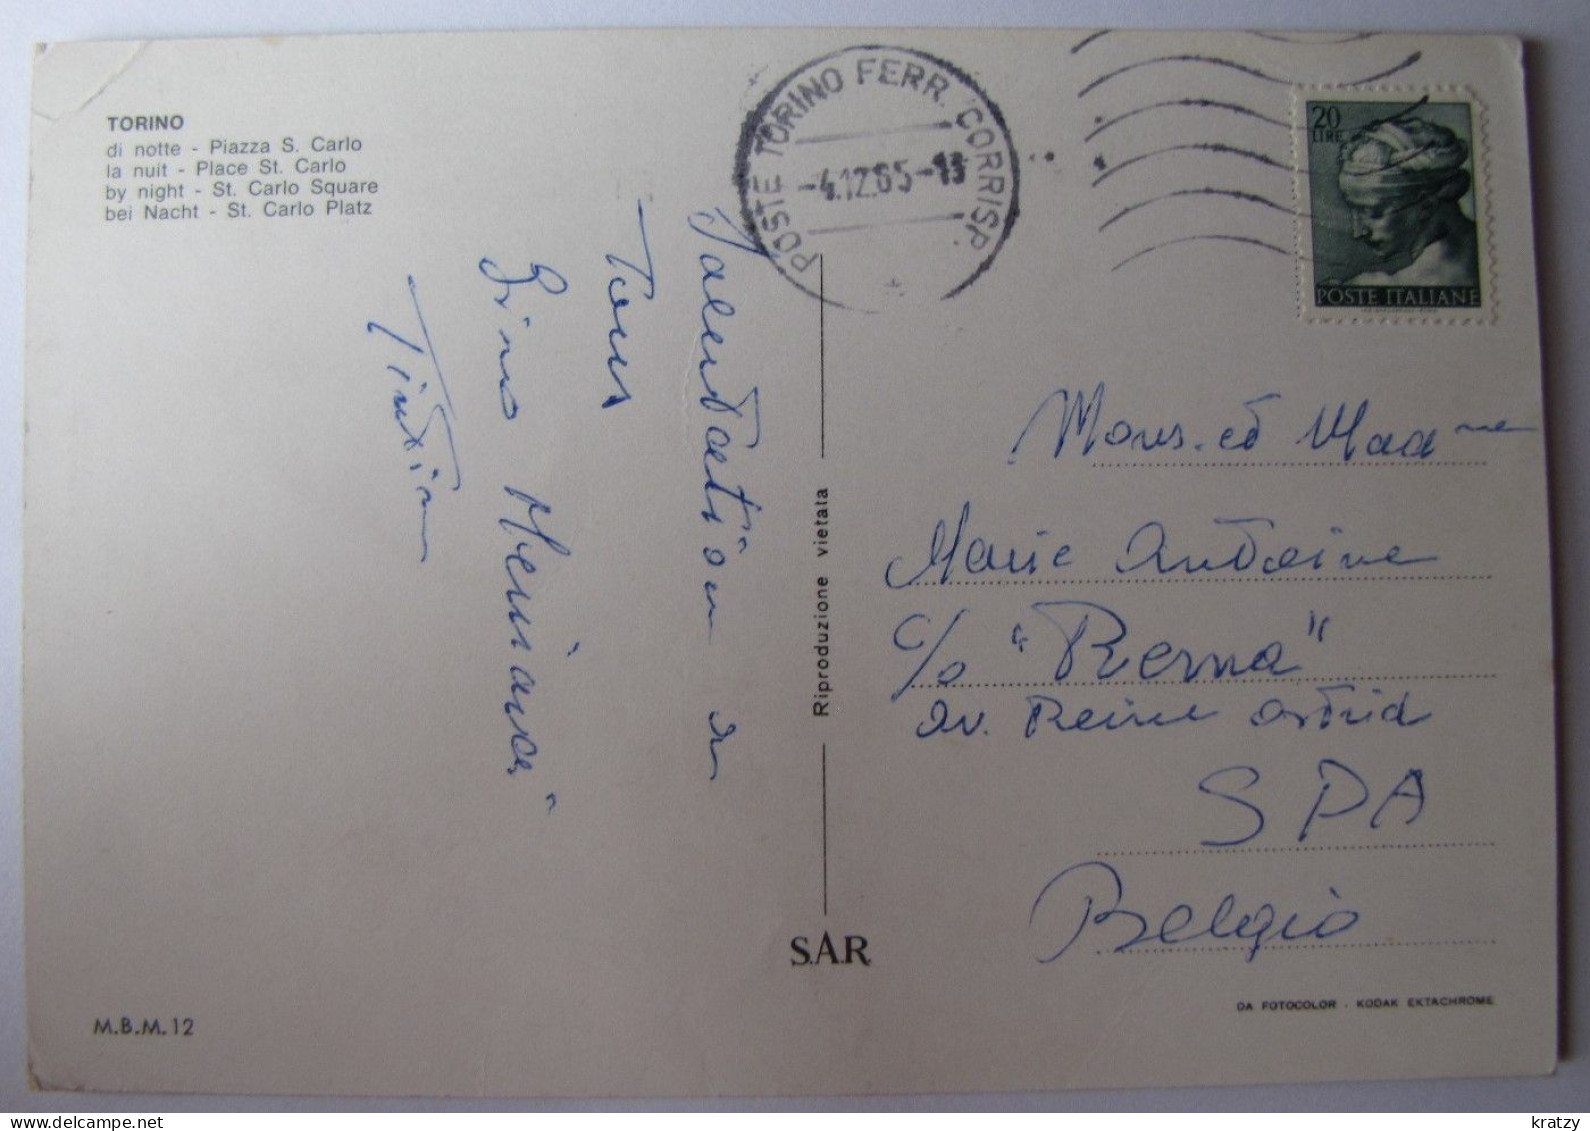 TORINO
di notte - Piazza S. Carlo
la nuit - Place St. Carlo
by night - St. Carlo Square
bei Nacht - St. Carlo Platz
POSTE TORINO FERR. CORRISP.
-4.12.65-13
20
LIRE
POSTE ITALIANE
Salutations a
Tous
Tintin
Riproduzione vietata
Mons. et Mad me
Marie Antoine
c/o "Rerna"
av. Reine Astrid
SPA
Belgio
S.A.R.
M.B.M. 12
DA FOTOCOLOR - KODAK EKTACHROME
kratzy